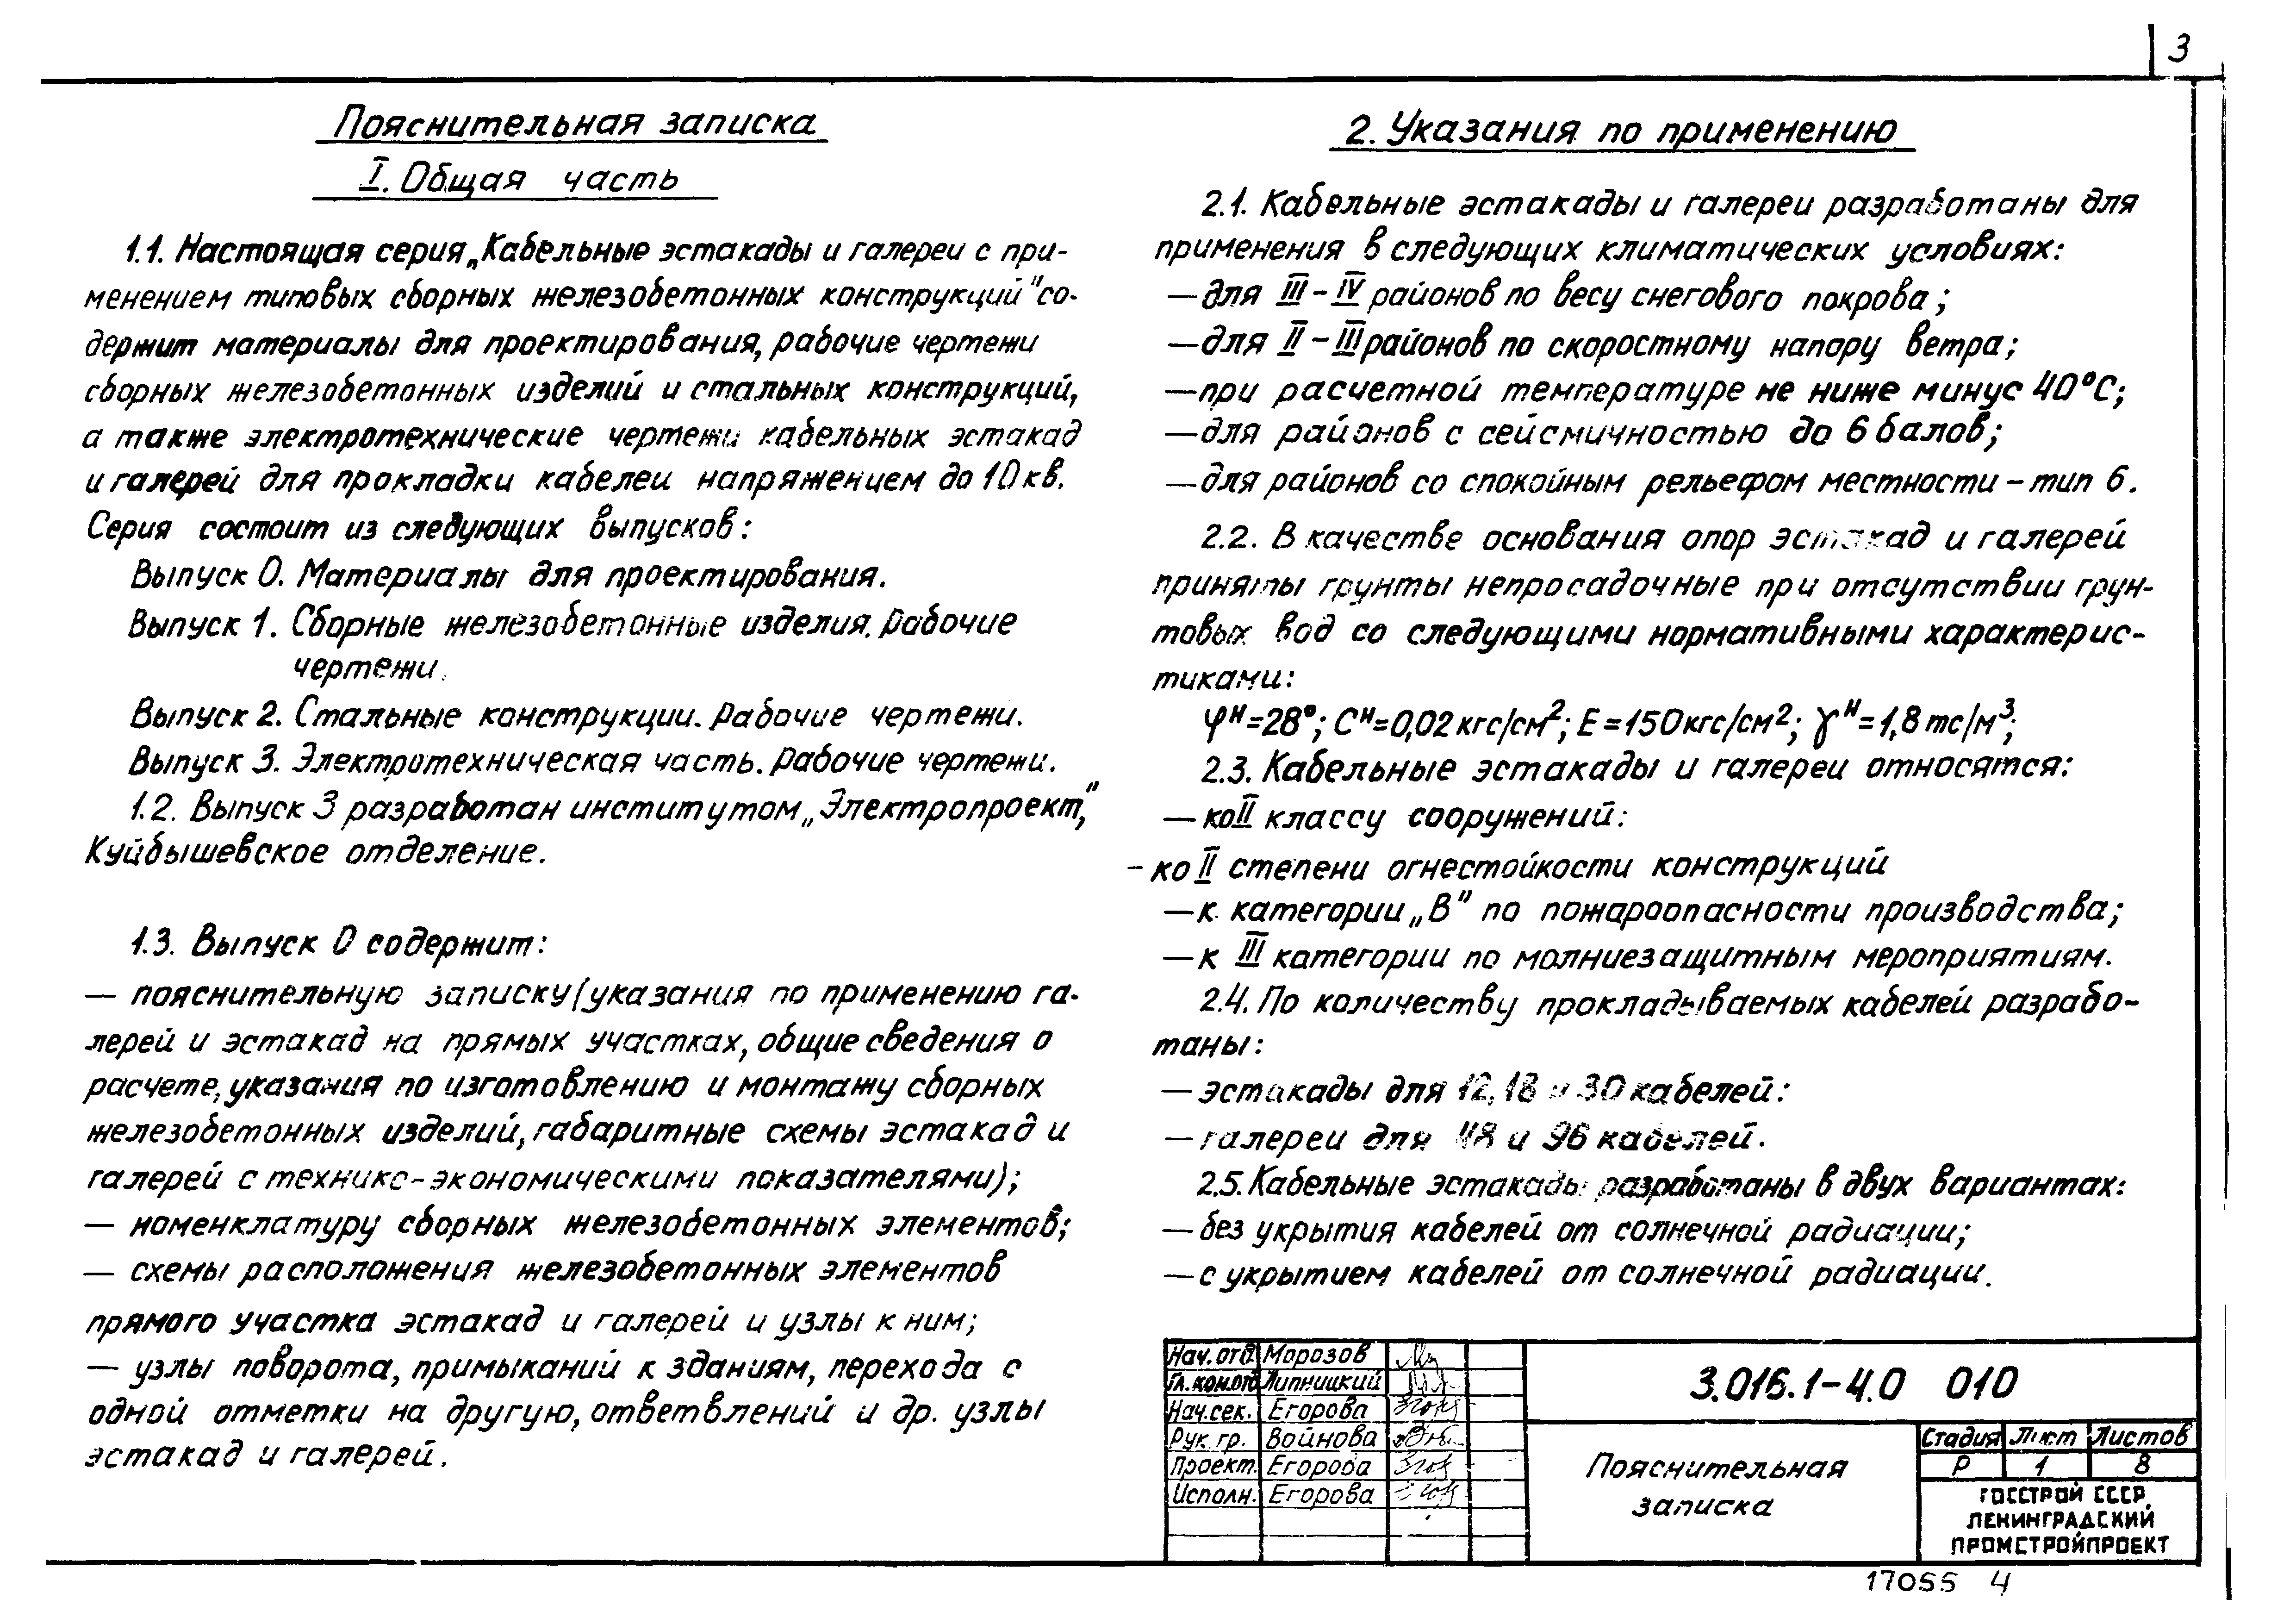 3
Пояснительная записка
I. Общая часть
1.1. Настоящая серия „Кабельные эстакады и галереи с при-
менением типовых сборных железобетонных конструкций" со-
держит материалы для проектирования, рабочие чертежи
сборных железобетонных изделий и стальных конструкций,
а также электротехнические чертежи кабельных эстакад
и галерей для прокладки кабелеи напряжением до 10 кв.
Серия состоит из следующих выпусков:
Выпуск 0. Материалы для проектирования.
Выпуск 1. Сборные железобетонные изделия. Рабочие
чертежи.
Выпуск 2. Стальные конструкции. Рабочие чертежи.
Выпуск 3. Электротехническая часть. Рабочие чертежи.
1.2. Выпуск 3 разработан институтом „Электропроект",
Куйбышевское отделение.
1.3. Выпуск 0 содержит:
— пояснительную записку (указания по применению га-
лерей и эстакад на прямых участках, общие сведения о
расчете, указания по изготовлению и монтажу сборных
железобетонных изделий, габаритные схемы эстакад и
галерей с технико-экономическими показателями);
— номенклатуру сборных железобетонных элементов;
— схемы расположения железобетонных элементов
прямого участка эстакад и галерей и узлы к ним;
— узлы поворота, примыканий к зданиям, перехода с
одной отметки на другую, ответвлений и др. узлы
эстакад и галерей.
2. Указания по применению
2.1. Кабельные эстакады и галереи разработаны для
применения в следующих климатических условиях:
— для III – IV районов по весу снегового покрова;
— для II – III районов по скоростному напору ветра;
— при расчетной температуре не ниже минус 40°С;
— для районов с сейсмичностью до 6 балов;
— для районов со спокойным рельефом местности – тип б.
2.2. В качестве основания опор эстакад и галерей
приняты грунты непросадочные при отсутствии грун-
товых вод со следующими нормативными характерис-
тиками:
φᴴ=28°; Cᴴ=0,02 кгс/см²; E=150кгс/см²; γᴴ=1,8 тс/м³;
2.3. Кабельные эстакады и галереи относятся:
— ко II классу сооружений:
- ко II степени огнестойкости конструкций
— к категории „В" по пожароопасности производства;
— к III категории по молниезащитным мероприятиям.
2.4. По количеству прокладываемых кабелей разрабо-
таны:
— эстакады для 12, 18 и 30 кабелей:
— галереи для 48 и 96 кабелей.
2.5. Кабельные эстакады разработаны в двух вариантах:
— без укрытия кабелей от солнечной радиации;
— с укрытием кабелей от солнечной радиации.
Нач. отд. Морозов
Гл. кон. отд Липницкий
Нач. сек. Егорова
Рук. гр. Войнова
Проект. Егорова
Исполн. Егорова
3.016.1-4.0 010
Пояснительная
записка
Стадия Лист Листов
Р 1 8
ГОССТРОЙ СССР
ЛЕНИНГРАДСКИЙ
ПРОМСТРОЙПРОЕКТ
17055 4